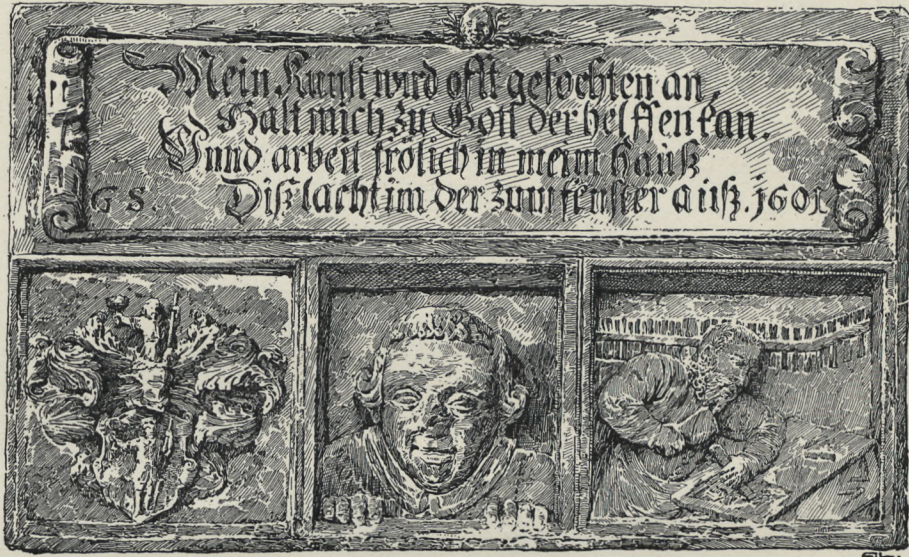 Mein Kunst wird offt gefochten an,
Halt mich zu Gott der helffen kan.
Vnnd arbeit frölich in meim Hauß
G S. Diß lacht im der zum fenster auß. 1601